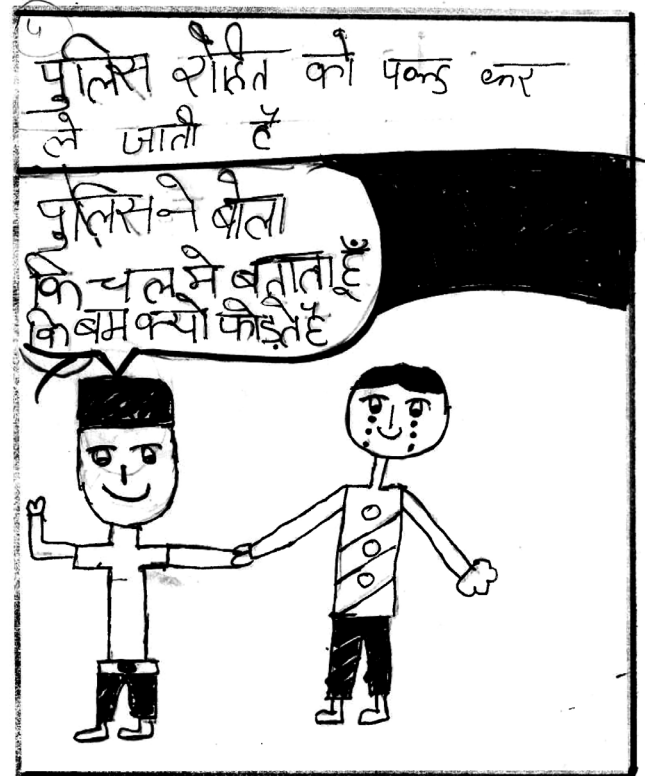 ५
पुलिस रोहित को पकड कर
ले जाती है
पुलिस ने बोला
कि चल मे बताता हूँ
कि बम क्यो फोड़ते है